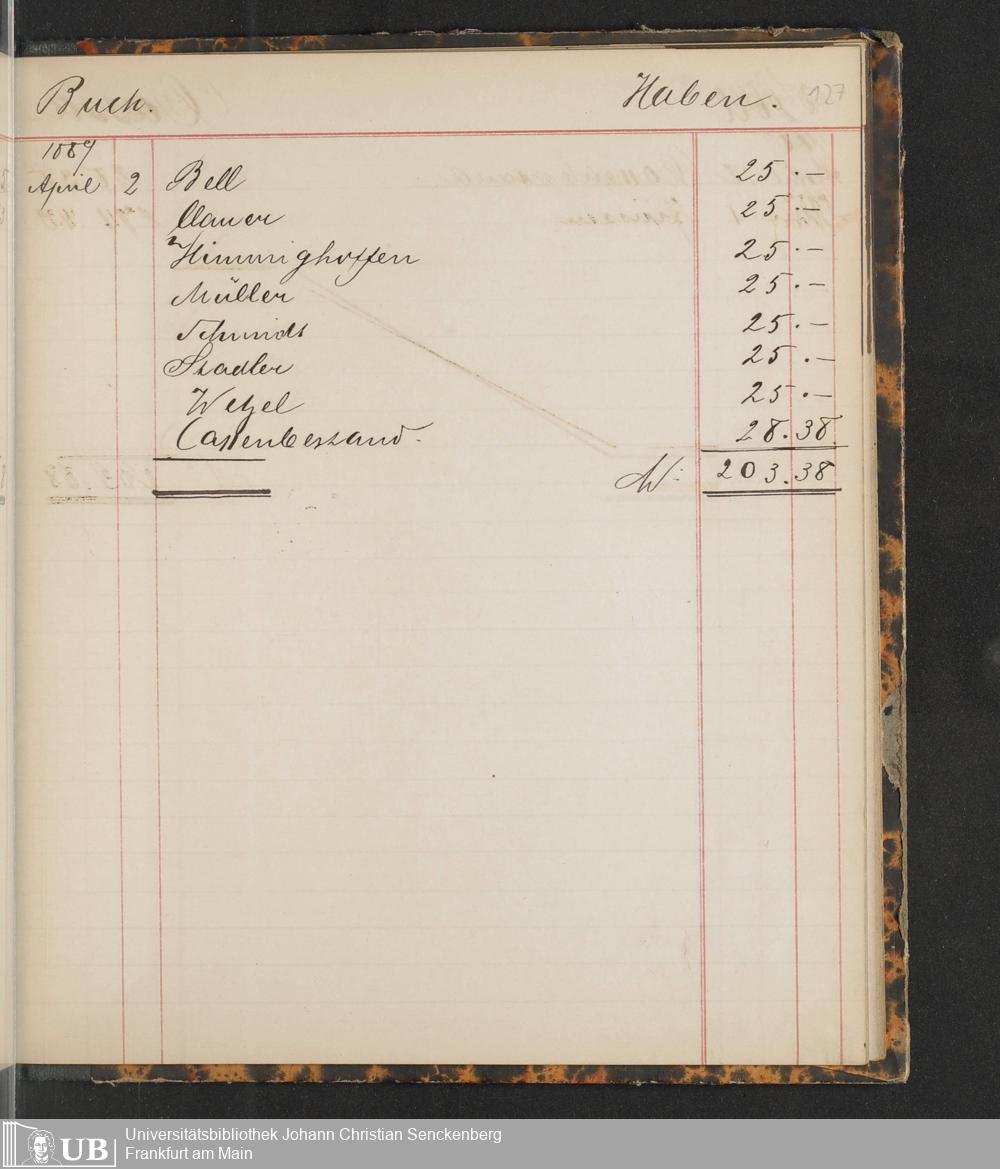 Buch. Haben. 127
1889
April 2 Bell 25.—
Clauer 25.—
Himmighoffen 25.—
Müller 25.—
Schmidt 25.—
Stadler 25.—
Wetzel 25.—
Cassenbestand. 28.38
M: 203.38
UB Universitätsbibliothek Johann Christian Senckenberg
Frankfurt am Main